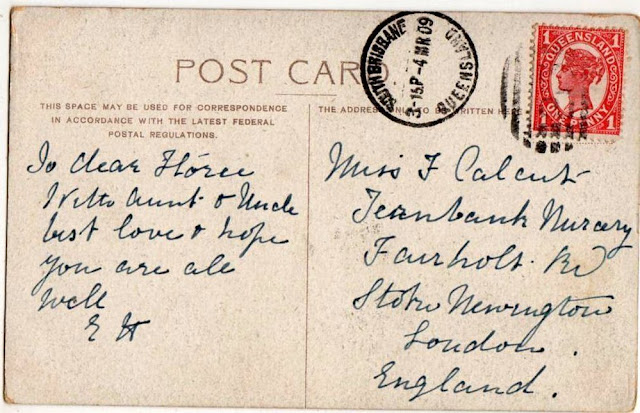 POST CARD
THIS SPACE MAY BE USED FOR CORRESPONDENCE
IN ACCORDANCE WITH THE LATEST FEDERAL
POSTAL REGULATIONS.
THE ADDRESS ONLY TO BE WRITTEN HERE
SOUTH BRISBANE
3-15P-4 MR 09
QUEENSLAND
1 QUEENSLAND 1
1 ONE PENNY 1
To dear Floree
With Aunt & Uncle
best love & hope
you are all
well
E H
Miss F Calcut
Fernbank Nursery
Fairholt Rd
Stoke Newington
London.
England.